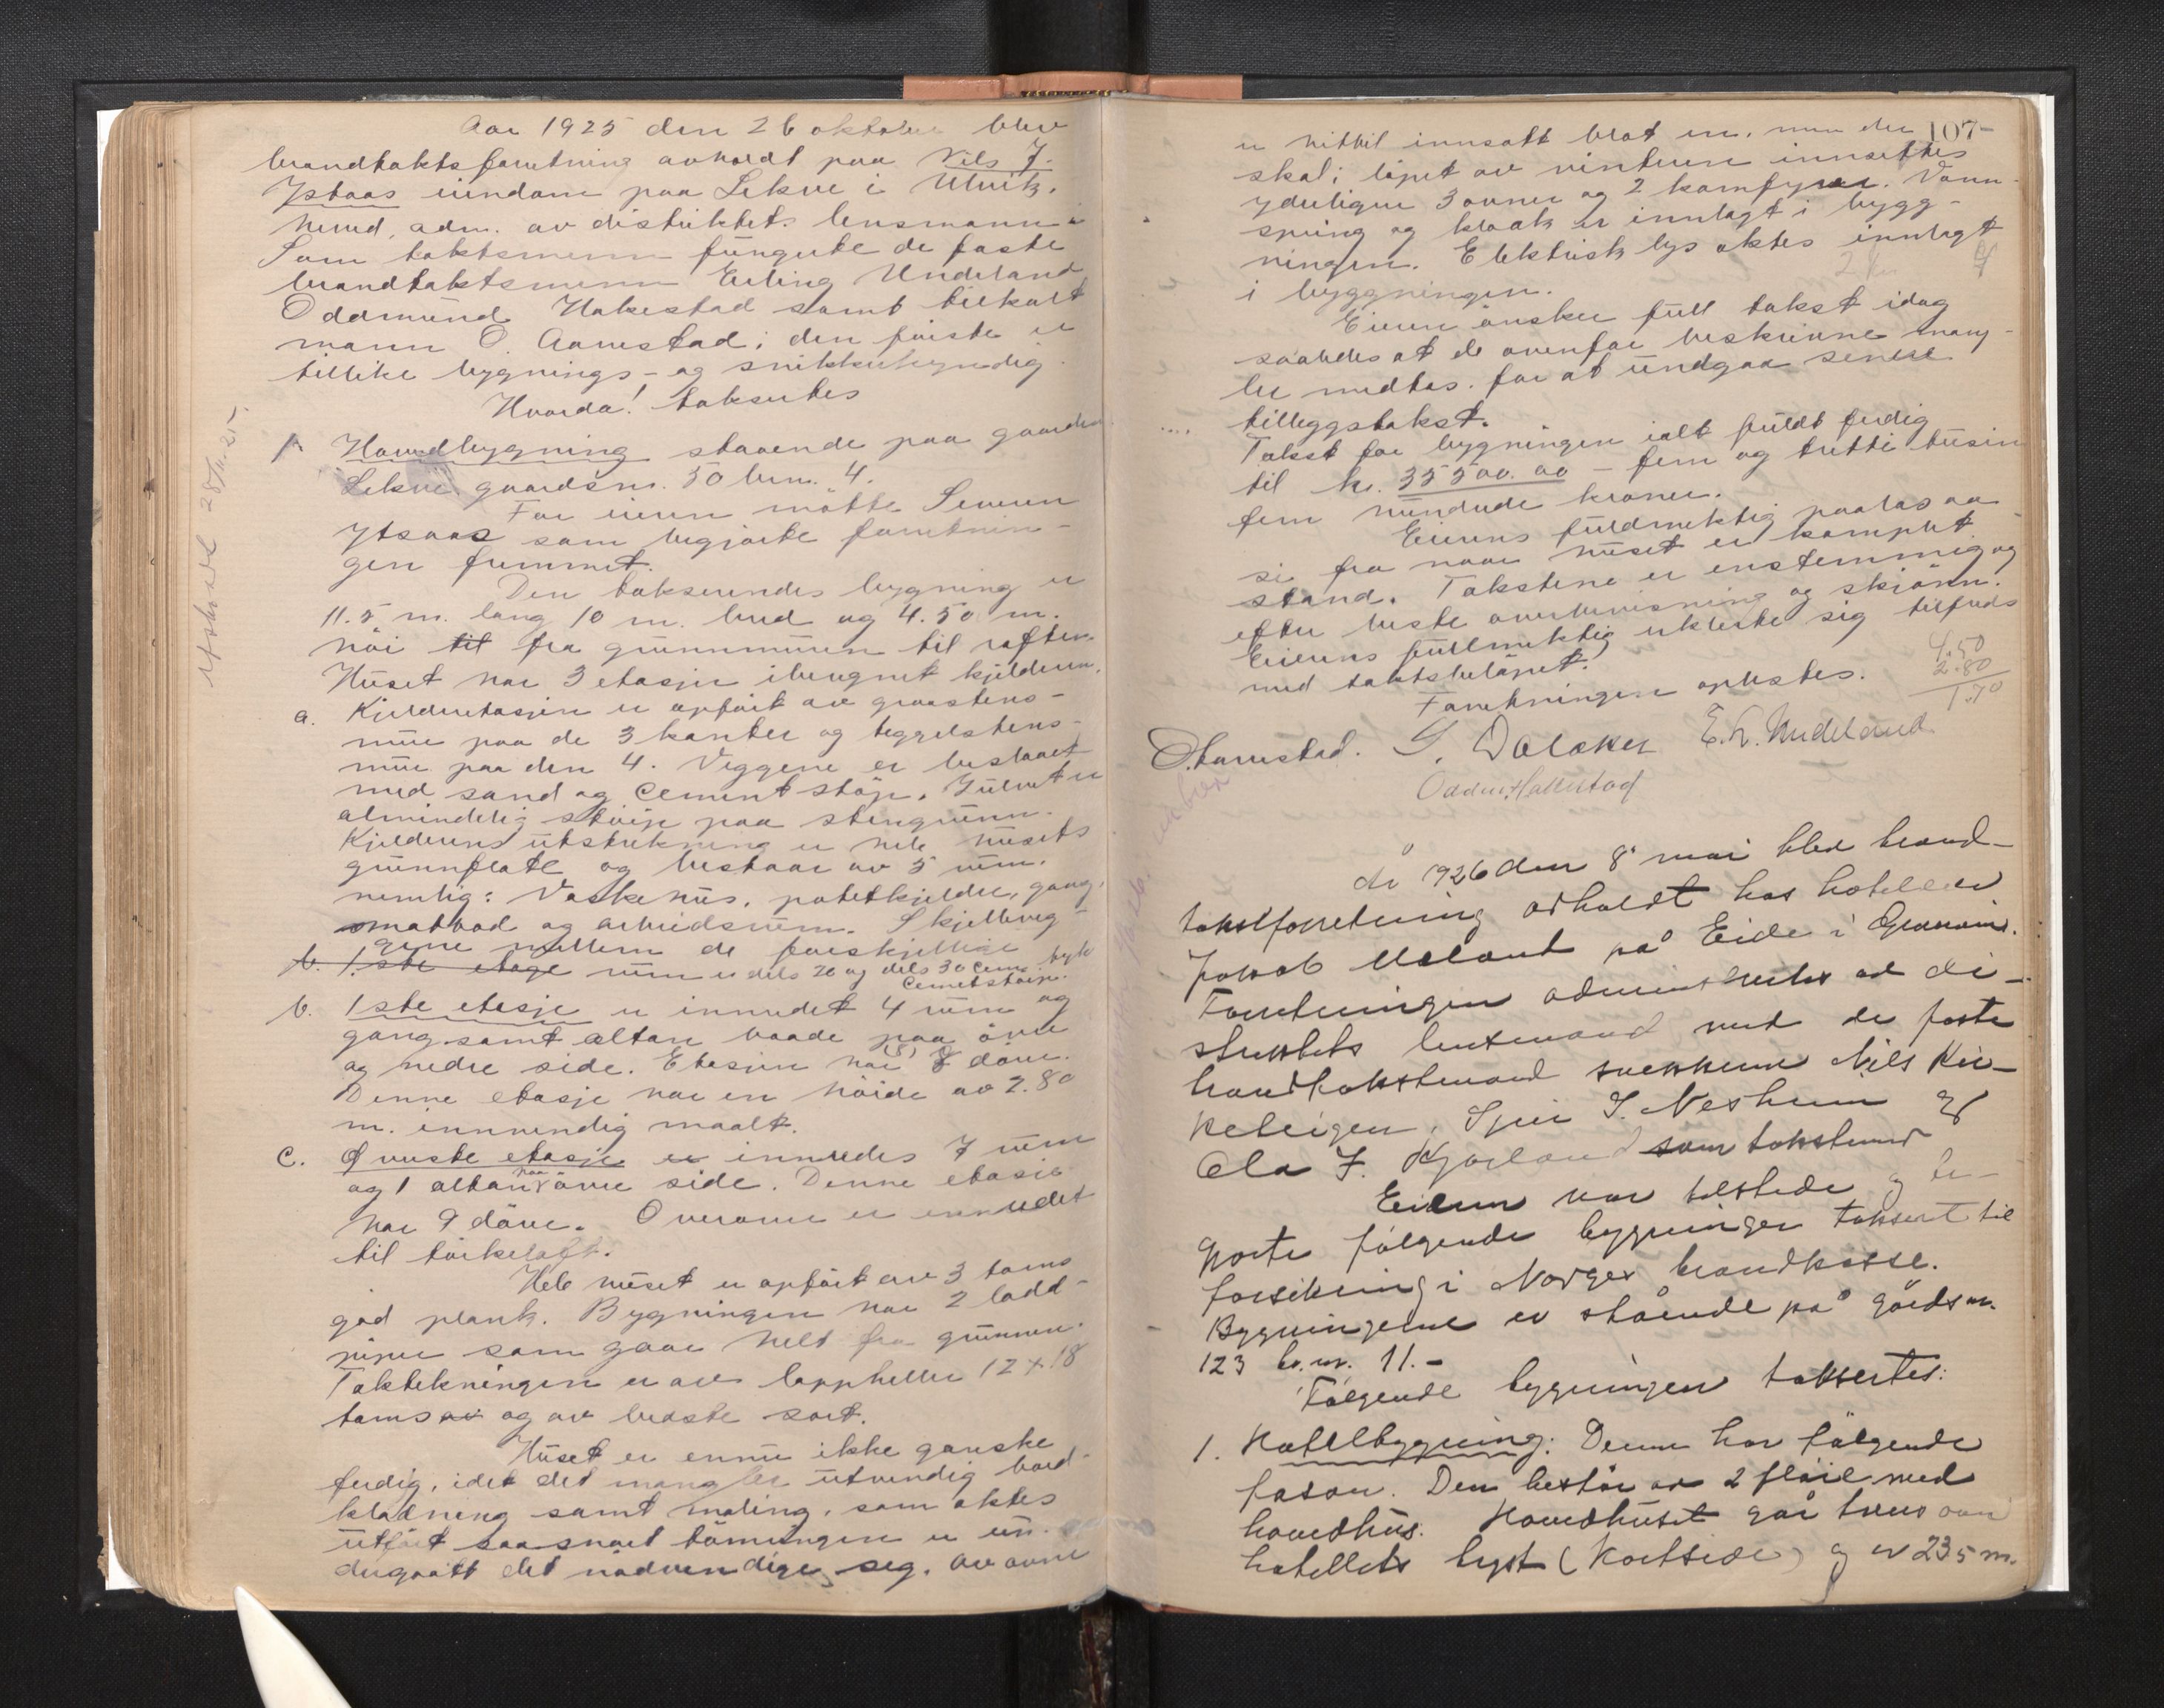 Aar 1925 den 26 oktober blev
brandtakstforretning avholdt paa Nils J.
Ystaas eiendom paa Lekve i Ulvik.
herred, adm. av distriktets lensmann
Som takstmenn fungerte de faste
brandtakstmenn Erling Undeland
Oddmund Hakestad samt tilkalt
mann O. Aarnestad; den første er
tillike bygnings- og snikkerkyndig.
Hvorda! taksertes
1. Hovedbygning staaende paa gaarden
Lekve gaardsnr. 50 brn. 4.
For eieren møtte Severin
Ytsaas som begjærte forretnin-
gen fremmet.
Den takserendes bygning er
11.5 m. lang 10 m. bred og 4.50 m.
høi til fra grunnmuren til raften.
Huset har 3 etasjer iberegnet kjelderen.
a. Kjelderetasjen er opført av graastens-
mur paa de 3 kanter og teggelstens-
mur paa den 4. Veggene er beslaaet
med sand og cement støp. Gulvet er
almindelig støip paa stengrunn.
Kjelderens utstrekning er hele husets
grunnflate og bestaar av 5 rum.
nemlig: Vaskehus, potetkjelder, gang,
matbod og arbeidsrum. Skjelleveg-
gene mellem de forskjellige
b. 1.ste etage rum er dels 20 og dels 30 cem. tyk
Cemetstøip.
b. 1ste etasje er innredet 4 rum og
gang samt altan baade paa øvre
og nedre side. Etasjen har (8) 8 døre.
Denne etasje har en høide av 2.80
m. innvendig maalt.
c. Øverste etasje er innredes 7 rum
og 1 altan paa øvre side. Denne etasje
har 9 døre. Overover er innredet
til tørkeloft.
Hele huset er opført av 3 toms
god plank. Bygningen har 2 ladd-
piper som gaar helt fra grunnen.
Taktekningen er av lappheller 12 x 18
toms av og av bedste sort.
Huset er ennu ikke ganske
ferdig, idet det mangler utvendig bord-
kladning samt maling, som aktes
utført saasnart tømringen er un-
dergaatt det nødvendige seg. Av ovne
Avskrevet 28/11-25.
107
er hittil innsatt blot en, men der
skal i løpet av vinteren innsettes
yderligere 3 ovner og 2 komfyrer. Vann-
spring og kloak er innlagt i bygg-
ningen. Elektrisk lys aktes innlagt
i byggningen.
Eieren ønsker full takst idag
saaledes at de ovenfor beskrivne mang-
ler medtas. for at undgaa senere
tilleggstakst.
Takst for bygningen ialt fuldt ferdig
til kr. 35500.00 - fem og tretti tusin
fem hundrede kroner.
Eierens fuldmektig paalas aa
si fra naar huset er i komplet
stand. Takstene er enstemmig og
efter beste overbevisning og skjønn.
Eierens fullmektig erklerte sig tilfreds
med takstbeløpet.
Forretningen oplestes.
4.50
2.80
1.70
O. Aarnestad. G. Dalaker E. L. Undeland
Oddm. Hakestad
År 1926 den 8' mai blev brand-
takstforretning avholdt hos hoteleier
Jakob Mæland på Eide i Granvin.
Forretningen administrertes av di-
striktets lensmand med de faste
brandtakstmend snekkerne Nils Kir-
keteigen, Sjur S. Nesheim og
Ola J. Kjærland som takstmend
Eieren var tilstede og be-
gjærte følgende bygninger taksert til
forsikring i Norges brandkasse.
Bygningerne er stående på gårdsnr.
123 br.nr. 11.-
Følgende bygninger taksertes:
1. Hotelbygning: Denne har følgende
fason. Den består av 2 fløie med
hovedhus. Hovedhuset går tvers over
hotellets lyst (kortside) og er 235 m.